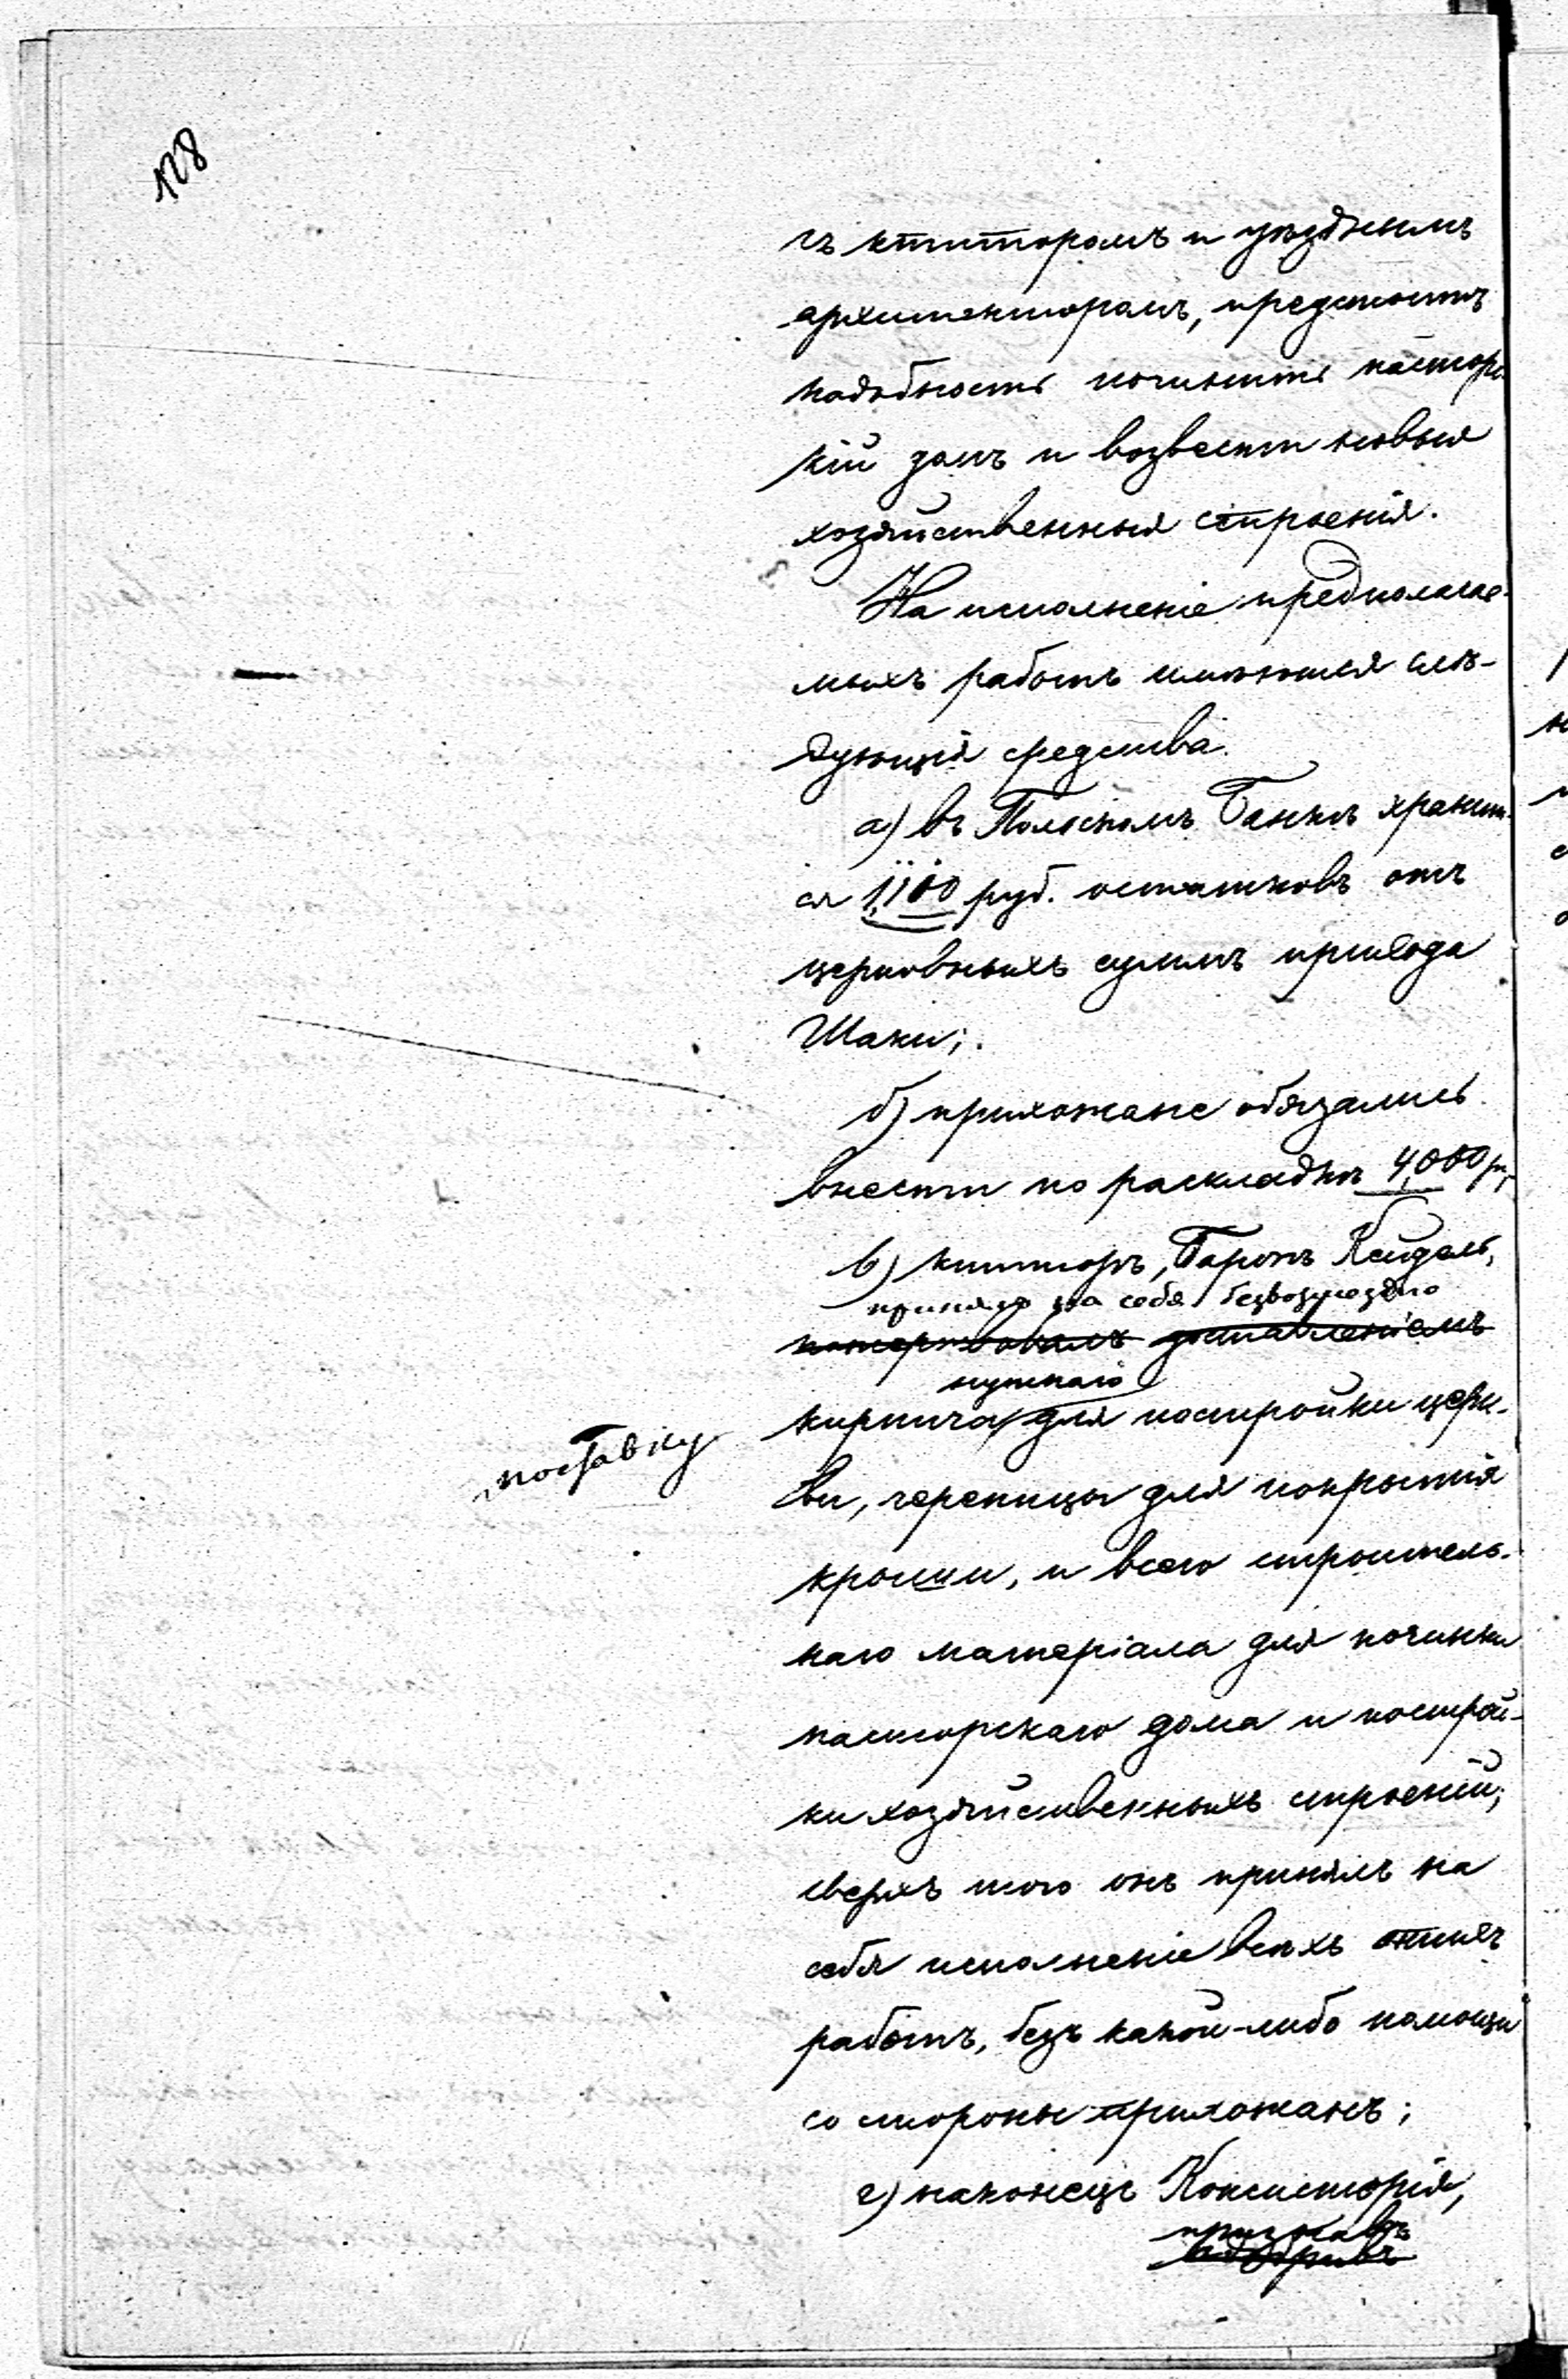 128
съ ктиторомъ и уѣзднымъ
архитекторомъ, предстоитъ
надобность починить пасторс
кій домъ и возвести новыя
хозяйственныя строенія.
На исполненіе предполагае-
мыхъ работъ имѣются слѣ-
дующія средства.
а) въ Польскомъ Банкѣ хранит-
ся 1,100 руб. остатковъ отъ
церковныхъ суммъ прихода
Шаки;
б) прихожане обязались
внести по раскладкѣ 4,000 р,
в) ктиторъ, Баронъ Кейдель,
принялъ на себя безвозмездно
пожертвовалъ доставленіемъ
нужнаго
поставку
кирпича для постройки церк-
ви, черепицы для покрытія
крыши, и всего строитель-
наго матеріала для починки
пасторскаго дома и построй-
ки хозяйственныхъ строеній;
сверхъ того онъ принялъ на
себя исполненіе всѣхъ этихъ
работъ, безъ какой-либо помощи
со стороны прихожанъ;
г) наконецъ Консисторія,
признавъ
одобривъ